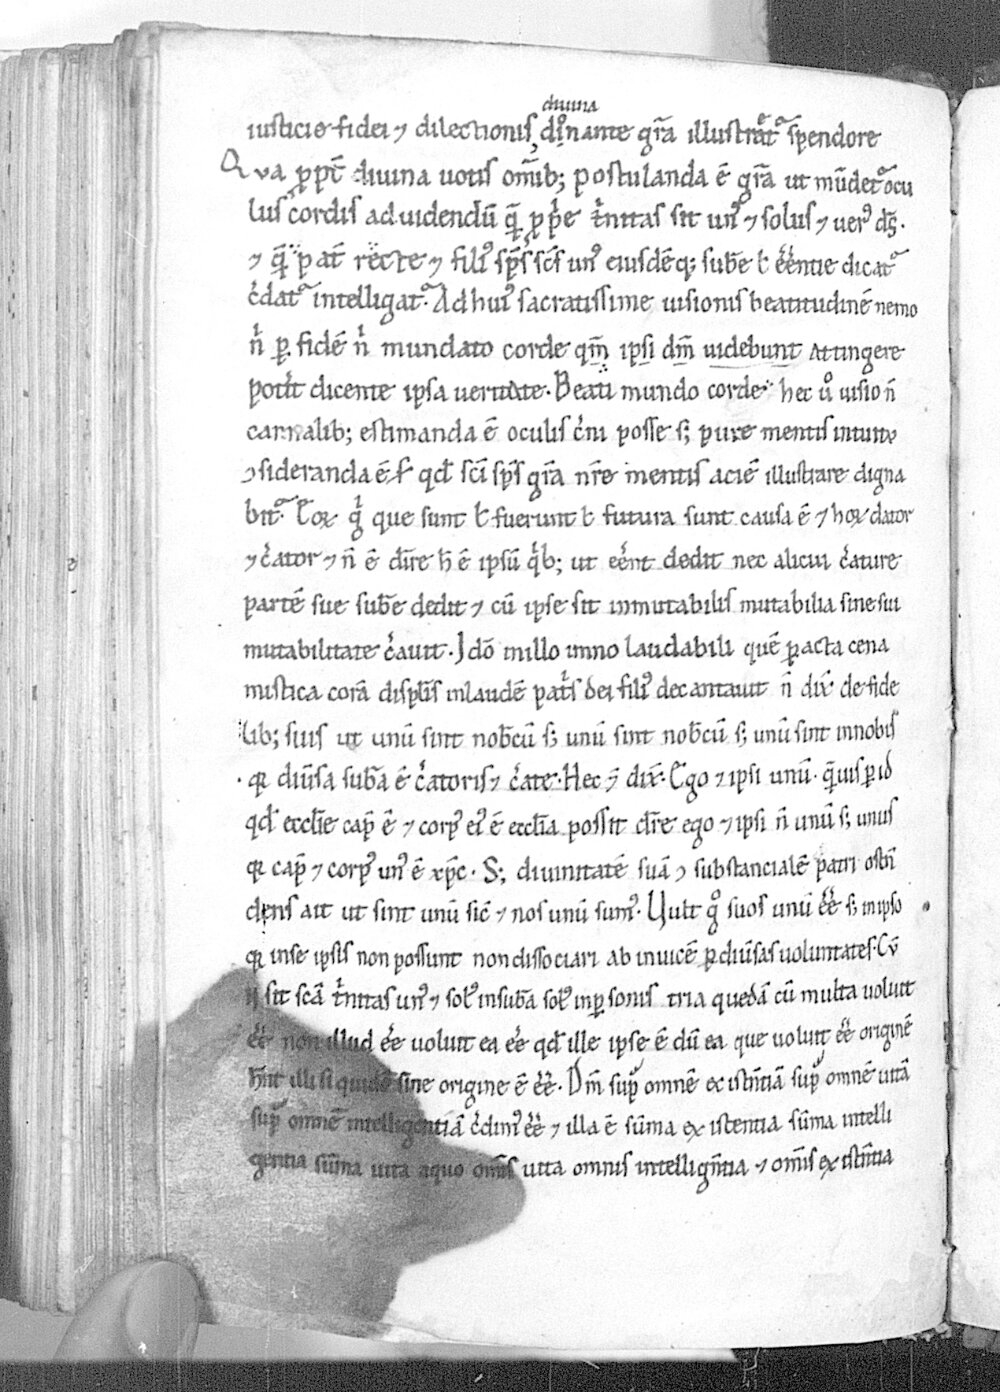 diuina
iusticie fidei ⁊ dilectionis, dōnante gr̄a illustrat᷑ spendore
Qua ꝓpt̄ diuina uotis om̄ib; postulanda ē gr̄a ut mūdet᷑ ocu
lus cordis ad uidendū q̄ ꝓpͥe tͥnitas sit unꝰ ⁊ solus ⁊ uerꝰ ds̄.
⁊ q̄ pat̄ recte ⁊ filiꝰ sp̄s sc̄s unꝰ eiusdēq; sub̄e ł eēntie dicat᷑
cͥdat᷑ intelligat᷑. Ad huiꝰ sacratissime uisionis beatitudinē nemo
nͥ ꝑ fidē nͥ mundato corde qm̄ ipsi dm̄ uidebunt attingere
potͥit dicente ipsa ueritate. Beati mundo corde. hec uͦ uisio n̄
carnalib; estimanda ē oculis cͥni posse s; pure mentis intuitu
ꝯsideranda ē qd̄ sc̄i sp̄s gr̄a nr̄e mentis aciē illustrare digna
bit᷑. que sunt ł fuerunt ł futura sunt causa ē ⁊ hoꝝ dator
⁊ cͥator ⁊ n̄ ē dīre h̄ ē ipsū qͥb; ut eēnt dedit nec alicui cͥature
partē sue sub̄e dedit ⁊ cū ipse sit inmutabilis mutabilia sine sui
mutabilitate cͥauit. Idō inillo imno laudabili quē ꝑacta cena
mistica corā displ̄is inlaudē patͥs dei filiꝰ decantauit n̄ dix̄ de fide
lib; suis ut unū sint nob̄cū s; unū sint nob̄cū s; unū sint innobis
qꝛ diūsa sub̄a ē cͥatoris ⁊ cͥate. Hec n̄ dix̄. Ego ⁊ ipsi unū. q̄uis ꝑ id
qd̄ eccl̄ie cap̄ ē ⁊ corpꝰ eiꝰ ē eccl̄ia possit dīre ego ⁊ ipsi n̄ unū s; unus
qꝛ cap̄ ⁊ corpꝰ unꝰ ē xp̄c. S; diuinitatē suā ꝯsubstancialē patri ostn̄
dens ait ut sint unū sic̄ ⁊ nos unū sumꝰ. Uult gͦ suos unū eē s; in ipso
qꝛ inse ipsis non possunt non dissociari ab inuicē ꝑ diūsas uoluntates. Cū
sit sc̄a tͥnitas unꝰ ⁊ solꝰ insub̄a solꝰ inꝑsonis tria quedā cū multa uoluit
eē non illud eē uoluit ea eē qd̄ ille ipse ē dū ea que uoluit eē originē
hn̄t illi siquidē sine origine ē eē. Dm̄ supͣ omnē existn̄tiā supͣ omnē uitā
supͣ omnē intelligentiā cͥdimꝰ eē ⁊ illa ē sūma existentia sūma intelli
gentia sūma uita aquo om̄is uita omnis intellign̄tia ⁊ om̄is existn̄tia